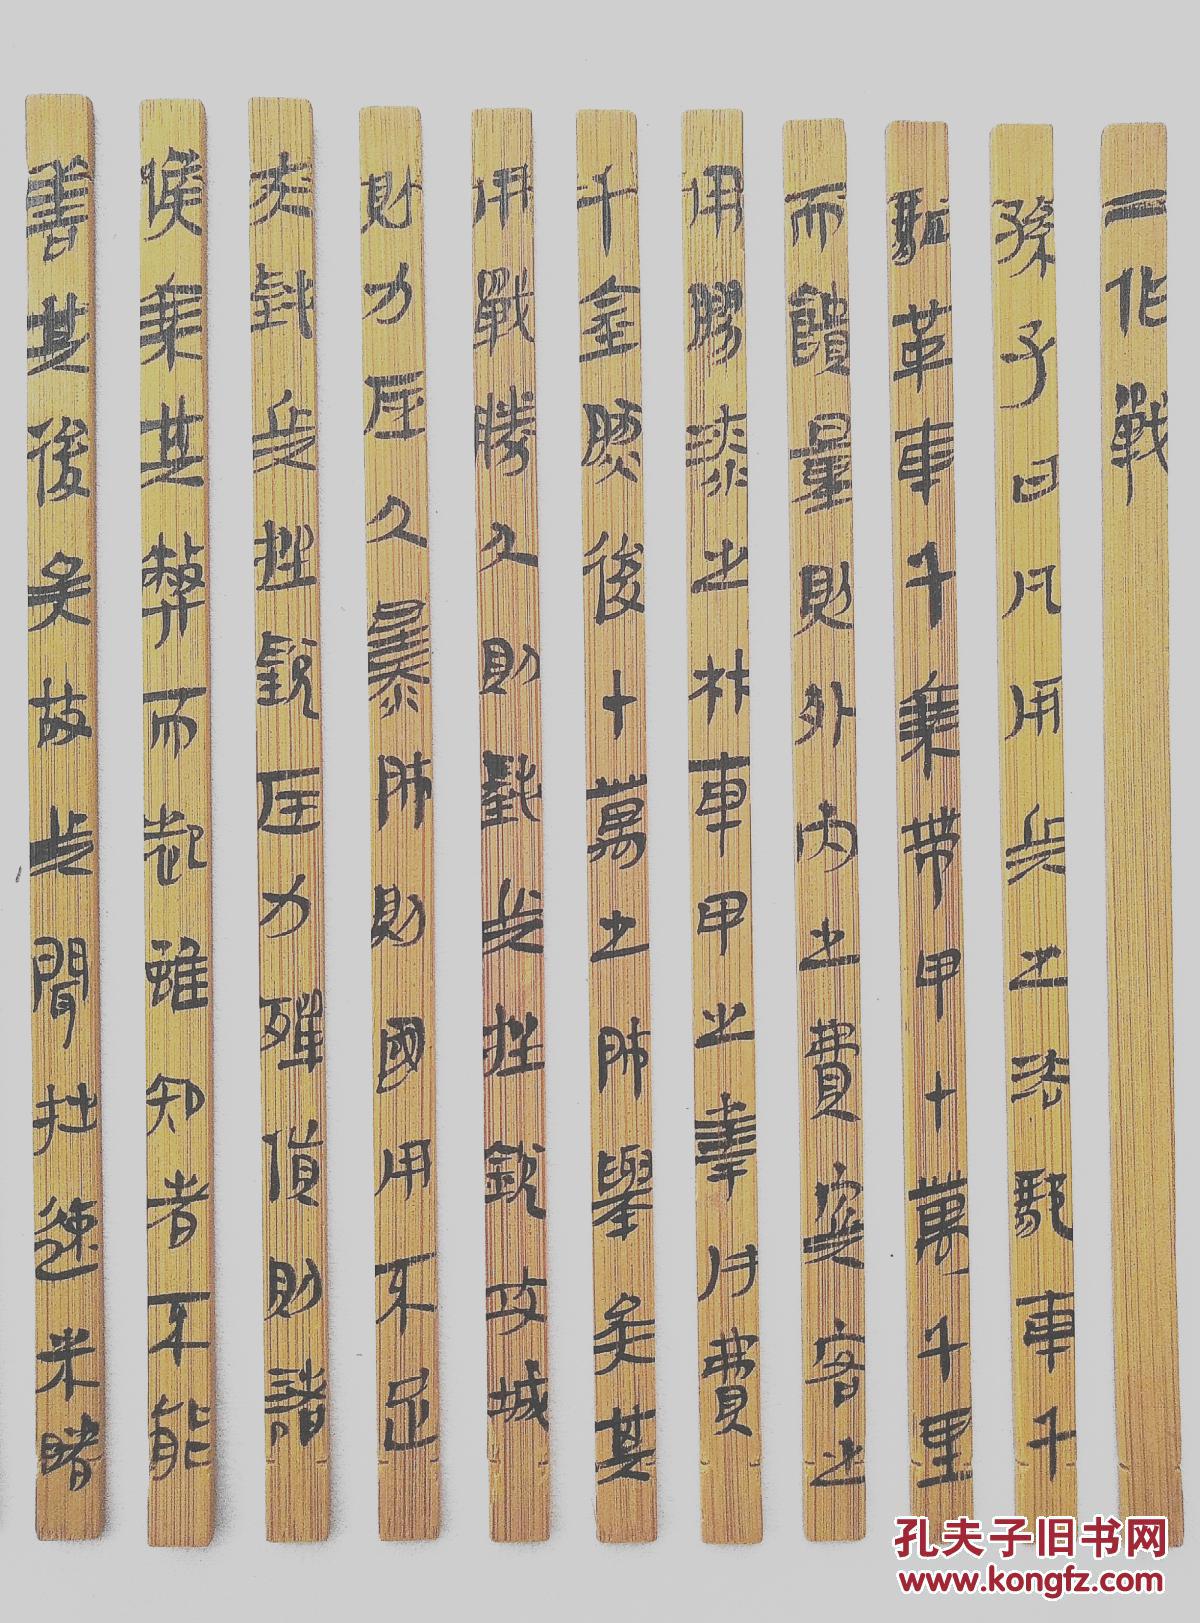 一作戰
孫子曰凡用兵之法馳車千
駟革車千乘帶甲十萬千里
而饋量則外內之費賓客之
用膠漆之材車甲之奉日費
千金然後十萬之師舉矣其
用戰勝久則鈍兵挫銳攻城
則力屈久暴師則國用不足
夫鈍兵挫銳屈力殫貨則諸
侯乘其弊而起雖知者不能
善其後矣故兵聞拙速未睹
孔夫子旧书网
www.kongfz.com